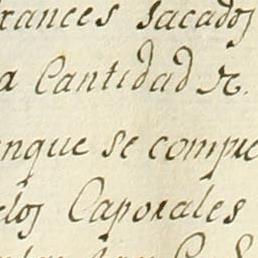 rances sacados
a Cantidad &c.
nque se compre
los Caporales